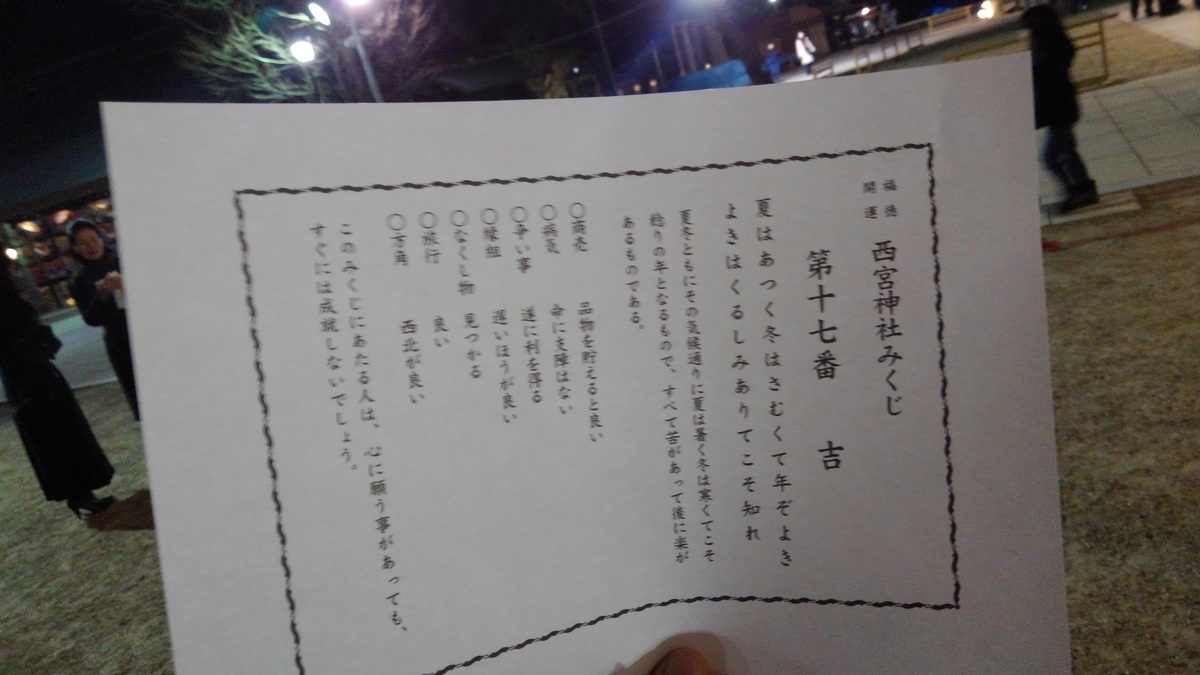 福徳
開運
西宮神社みくじ
第十七番 吉
夏はあつく冬はさむくて年ぞよき
よきはくるしみありてこそ知れ
夏冬ともにその気候通りに夏は暑く冬は寒くてこそ
稔りの年となるもので、すべて苦があって後に楽が
あるものである。
○商売 品物を貯えると良い
○病気 命に支障はない
○争い事 遂に利を得る
○縁組 遅いほうが良い
○なくし物 見つかる
○旅行 良い
○方角 西北が良い
このみくじにあたる人は、心に願う事があっても、
すぐには成就しないでしょう。